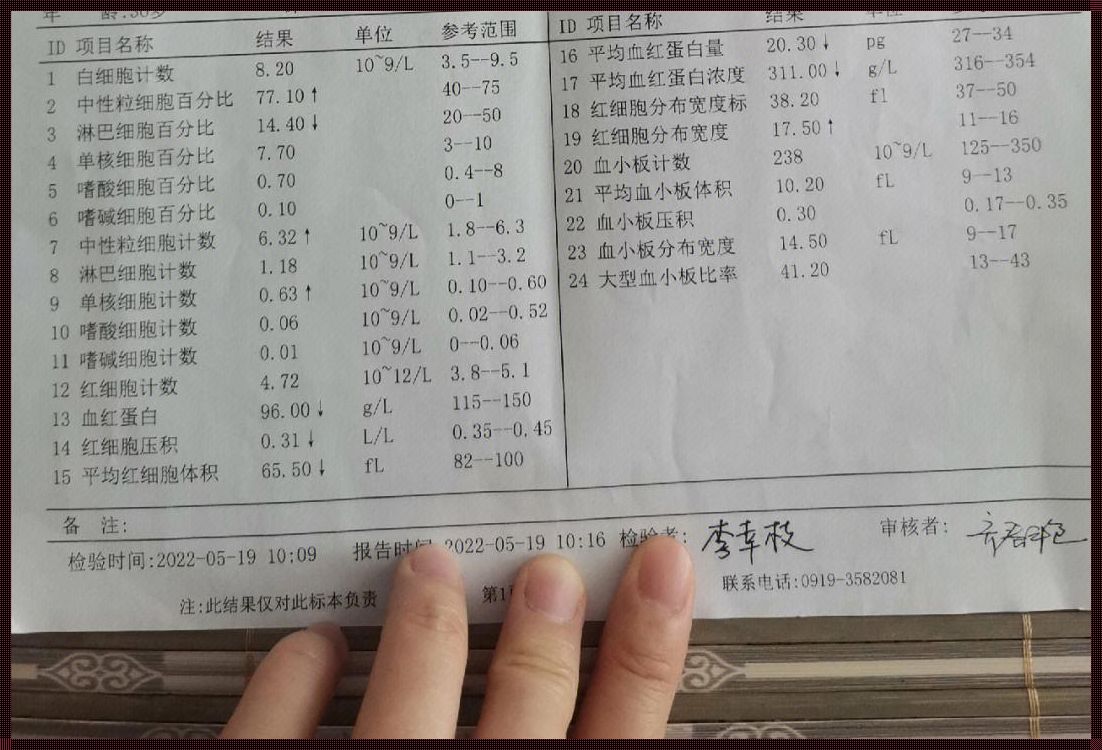 年 龄:30岁
ID 项目名称 结果 单位 参考范围
1 白细胞计数 8.20 10~9/L 3.5--9.5
2 中性粒细胞百分比 77.10↑ 40--75
3 淋巴细胞百分比 14.40↓ 20--50
4 单核细胞百分比 7.70 3--10
5 嗜酸细胞百分比 0.70 0.4--8
6 嗜碱细胞百分比 0.10 0--1
7 中性粒细胞计数 6.32↑ 10~9/L 1.8--6.3
8 淋巴细胞计数 1.18 10~9/L 1.1--3.2
9 单核细胞计数 0.63↑ 10~9/L 0.10--0.60
10 嗜酸细胞计数 0.06 10~9/L 0.02--0.52
11 嗜碱细胞计数 0.01 10~9/L 0--0.06
12 红细胞计数 4.72 10~12/L 3.8--5.1
13 血红蛋白 96.00↓ g/L 115--150
14 红细胞压积 0.31↓ L/L 0.35--0.45
15 平均红细胞体积 65.50↓ fL 82--100
ID 项目名称 结果 单位
16 平均血红蛋白量 20.30↓ pg 27--34
17 平均血红蛋白浓度 311.00↓ g/L 316--354
18 红细胞分布宽度标 38.20 fl 37--50
19 红细胞分布宽度 17.50↑ 11--16
20 血小板计数 238 10~9/L 125--350
21 平均血小板体积 10.20 fL 9--13
22 血小板压积 0.30 0.17--0.35
23 血小板分布宽度 14.50 fL 9--17
24 大型血小板比率 41.20 13--43
备 注:
检验时间:2022-05-19 10:09 报告时间 2022-05-19 10:16 检验者: 李幸枝 审核者:
注:此结果仅对此标本负责 第1 联系电话:0919-3582081